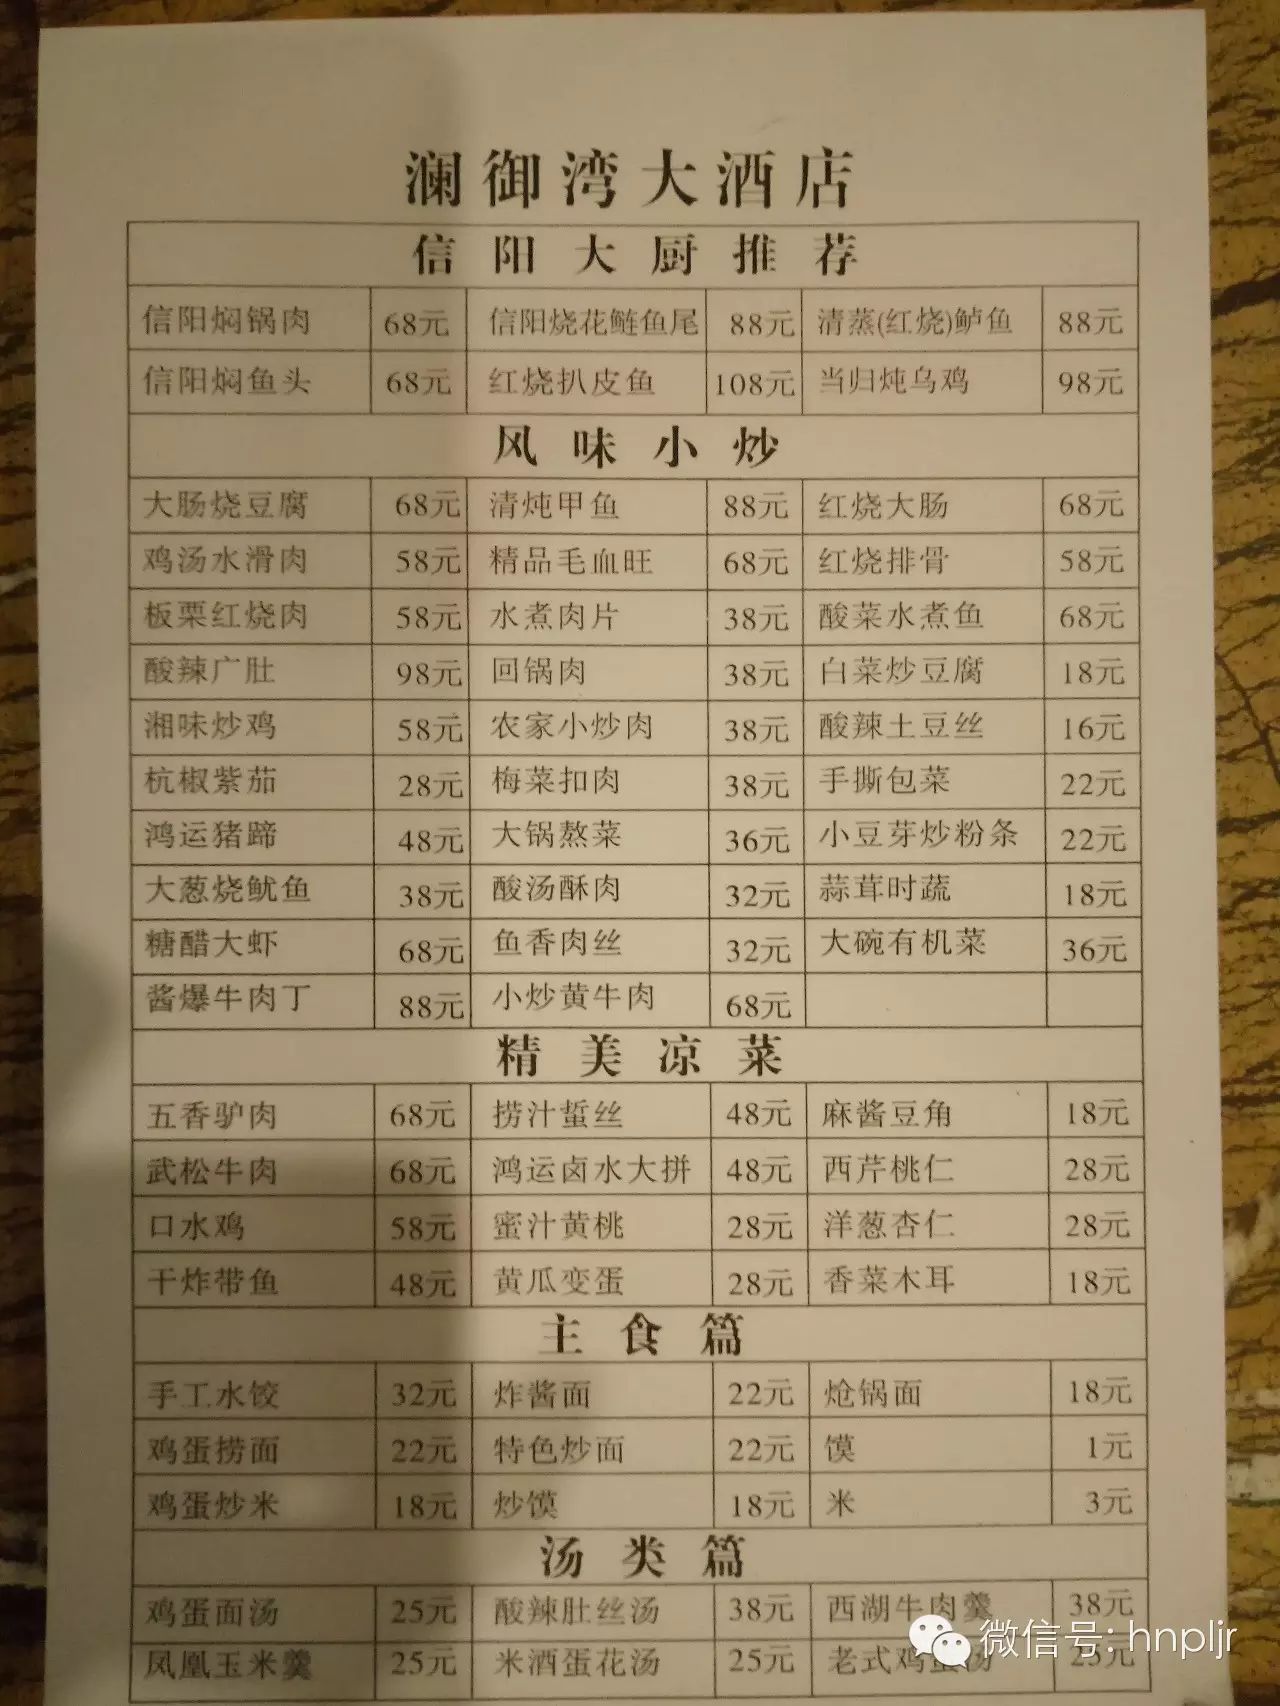 澜御湾大酒店
信阳大厨推荐
信阳焖锅肉 68元 信阳烧花鲢鱼尾 88元 清蒸(红烧)鲈鱼 88元
信阳焖鱼头 68元 红烧扒皮鱼 108元 当归炖乌鸡 98元
风味小炒
大肠烧豆腐 68元 清炖甲鱼 88元 红烧大肠 68元
鸡汤水滑肉 58元 精品毛血旺 68元 红烧排骨 58元
板栗红烧肉 58元 水煮肉片 38元 酸菜水煮鱼 68元
酸辣广肚 98元 回锅肉 38元 白菜炒豆腐 18元
湘味炒鸡 58元 农家小炒肉 38元 酸辣土豆丝 16元
杭椒紫茄 28元 梅菜扣肉 38元 手撕包菜 22元
鸿运猪蹄 48元 大锅熬菜 36元 小豆芽炒粉条 22元
大葱烧鱿鱼 38元 酸汤酥肉 32元 蒜茸时蔬 18元
糖醋大虾 68元 鱼香肉丝 32元 大碗有机菜 36元
酱爆牛肉丁 88元 小炒黄牛肉 68元
精美凉菜
五香驴肉 68元 捞汁蜇丝 48元 麻酱豆角 18元
武松牛肉 68元 鸿运卤水大拼 48元 西芹桃仁 28元
口水鸡 58元 蜜汁黄桃 28元 洋葱杏仁 28元
干炸带鱼 48元 黄瓜变蛋 28元 香菜木耳 18元
主食篇
手工水饺 32元 炸酱面 22元 炝锅面 18元
鸡蛋捞面 22元 特色炒面 22元 馍 1元
鸡蛋炒米 18元 炒馍 18元 米 3元
汤类篇
鸡蛋面汤 25元 酸辣肚丝汤 38元 西湖牛肉羹 38元
凤凰玉米羹 25元 米酒蛋花汤 25元 老式鸡蛋汤 25元
微信号: hnpljr